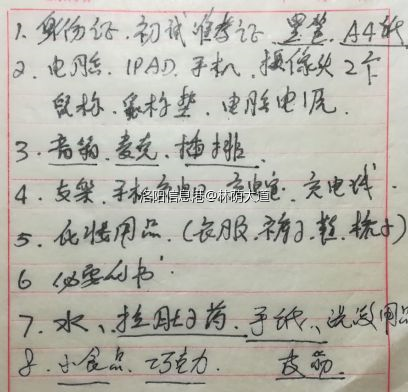 1. 身份证、初试准考证 黑笔、A4纸
2、电脑、IPAD、手机、摄像头2个
鼠标、鼠标垫、电脑电源
3、音箱、麦克、插排
4、支架、手机 充电宝、充电线
洛阳信息港@林荫大道
5、化妆用品、(衣服、裤子、鞋、梳子)
6 必要的书
7、水、拉肚子药、手纸、洗漱用品
8、小食品、巧克力、 皮筋